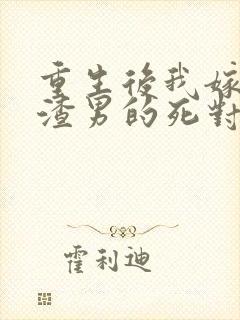 重生後我嫁
渣男的死對
霍利迪